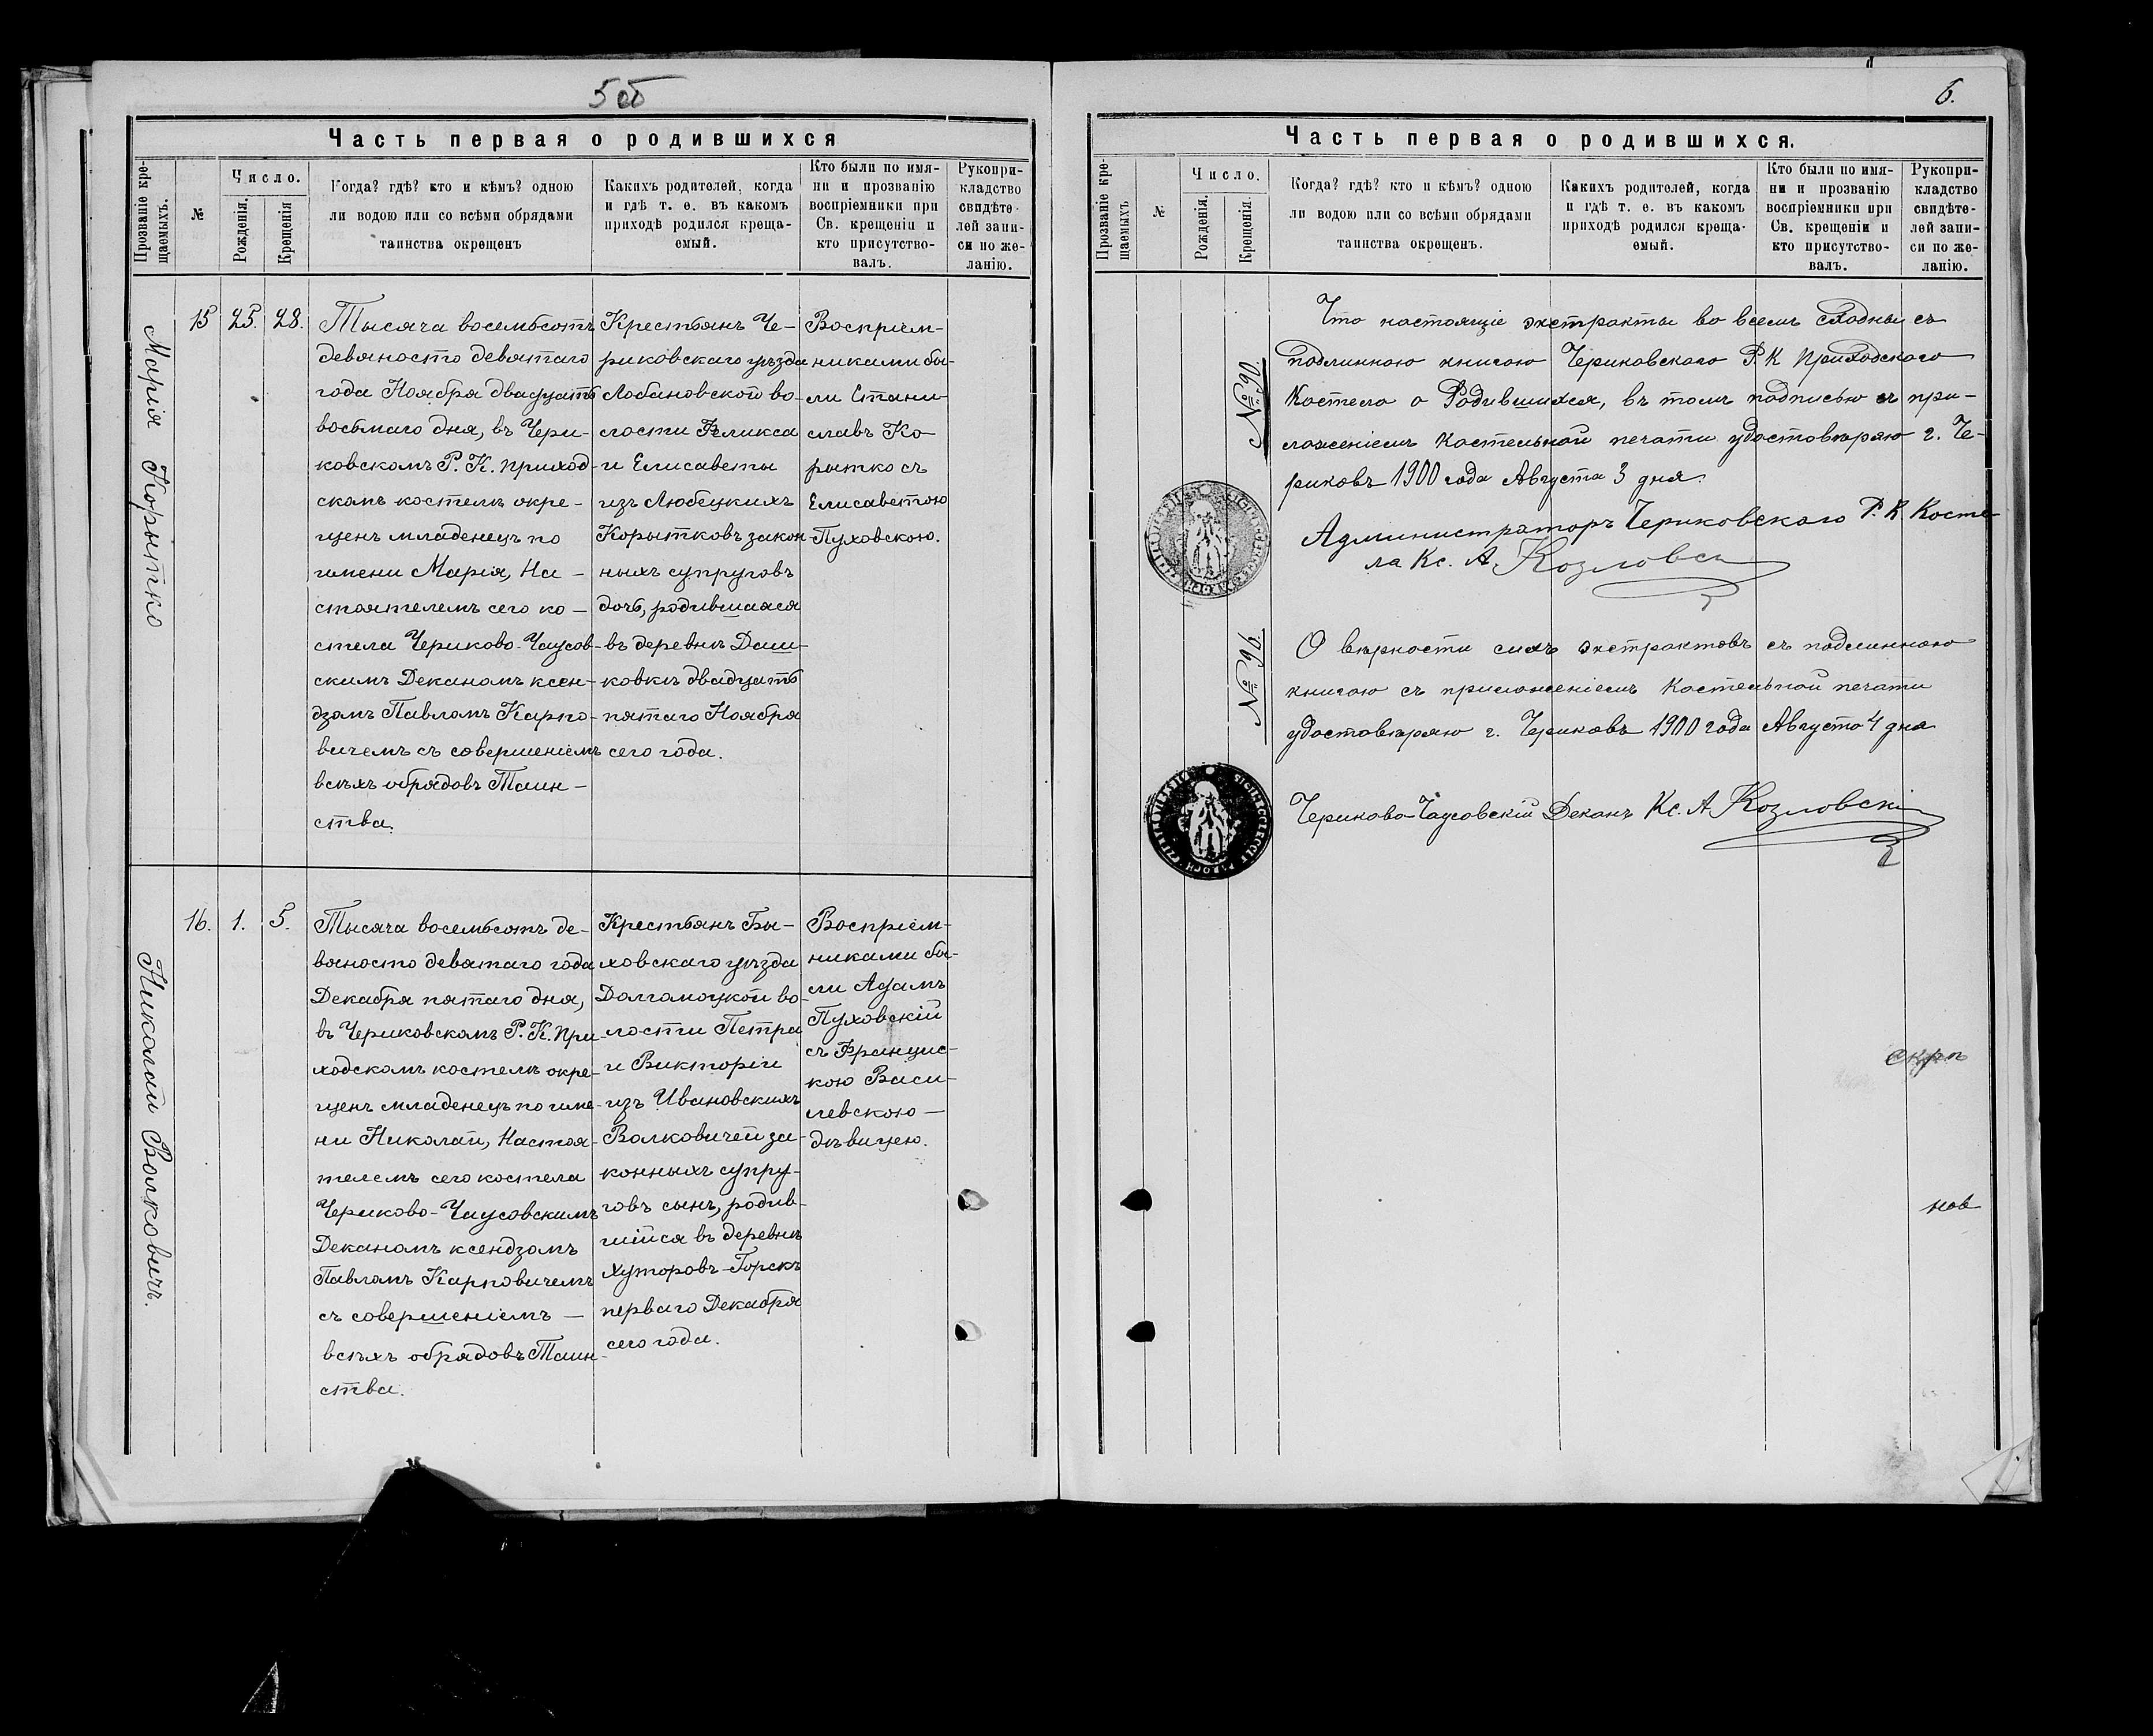 5об
Часть первая о родившихся
Прозваніе кре-
щаемыхъ.
№
Число.
Рожденія.
Крещенія
Когда? гдѣ? кто и кѣмъ? одною
ли водою или со всѣми обрядами
таинства окрещенъ
Какихъ родителей, когда
и гдѣ т. е. въ какомъ
приходѣ родился креща-
емый.
Кто были по имя-
ни и прозванію
воспріемники при
Св. крещеніи и
кто присутство-
валъ.
Рукопри-
кладство
свидѣте-
лей запи-
си по же-
ланію.
Марія Корытко
15
25.
28.
Тысяча восемьсотъ
девяносто девятаго
года Ноября двадцать
восьмаго дня, въ Чери-
ковскомъ Р. К. приход-
скомъ костелѣ окре-
щенъ младенецъ по
имени Марія, На-
стоятелемъ сего ко-
стела Чериково-Чаусов-
скимъ Деканомъ ксен-
дзомъ Павломъ Карпо-
вичемъ съ совершеніемъ
всѣхъ обрядовъ Таин-
ства.
Крестьянъ Че-
риковскаго уѣзда
Лобановской во-
лости Феликса
и Елисаветы
изъ Любецкихъ
Корытковъ закон-
ныхъ супруговъ
дочь, родившаяся
въ деревнѣ Даш-
ковкѣ двадцать
пятаго Ноября
сего года.
Воспріем-
никами бы-
ли Стани-
славъ Ко-
рытко съ
Елисаветою
Пуховскою.
Николай Волковичъ.
16.
1.
5.
Тысяча восемьсотъ де-
вяносто девятаго года
Декабря пятаго дня,
въ Чериковскомъ Р. К. при-
ходскомъ костелѣ окре-
щенъ младенецъ по име-
ни Николай, Настоя-
телемъ сего костела
Чериково-Чаусовскимъ
Деканомъ ксендзомъ
Павломъ Карповичемъ
съ совершеніемъ —
всѣхъ обрядовъ Таин-
ства.
Крестьянъ Бы-
ховскаго уѣзда
Долгомоцкой во-
лости Петра
и Викторіи
изъ Ивановскихъ
Волковичей за-
конныхъ супру-
говъ сынъ, родив-
шійся въ деревнѣ
Хуторовъ-Горскъ
перваго Декабря
сего года.
Воспріем-
никами бы-
ли Адамъ
Пуховскій
съ Францис-
кою Васи-
левскою —
дѣвицею.
6.
Часть первая о родившихся.
Прозваніе кре-
щаемыхъ
№
Число.
Рожденія.
Крещенія.
Когда? гдѣ? кто и кѣмъ? одною
ли водою или со всѣми обрядами
таинства окрещенъ.
Какихъ родителей, когда
и гдѣ т. е. въ какомъ
приходѣ родился креща-
емый.
Кто были по имя-
ни и прозванію
воспріемники при
Св. крещеніи и
кто присутство-
валъ.
Рукопри-
кладство
свидѣте-
лей запи-
си по же-
ланію.
№ 90.
Что настоящіе экстракты во всемъ сходны съ
подлинною книгою Чериковскаго Р. К Приходскаго
Костела о Родившихся, въ томъ подписью съ при-
ложеніемъ костельной печати удостовѣряю г. Че-
риковъ 1900 года Августа 3 дня.
Администраторъ Чериковскаго Р. К. Косте-
ла Кс. А. Козловскі
№ 91.
О вѣрности сихъ экстрактовъ съ подлинною
книгою съ приложеніемъ Костельной печати
удостовѣряю г. Чериковъ 1900 года Августа 4 дня
Чериково-Чаусовскій Деканъ Кс. А Козловскі
нов